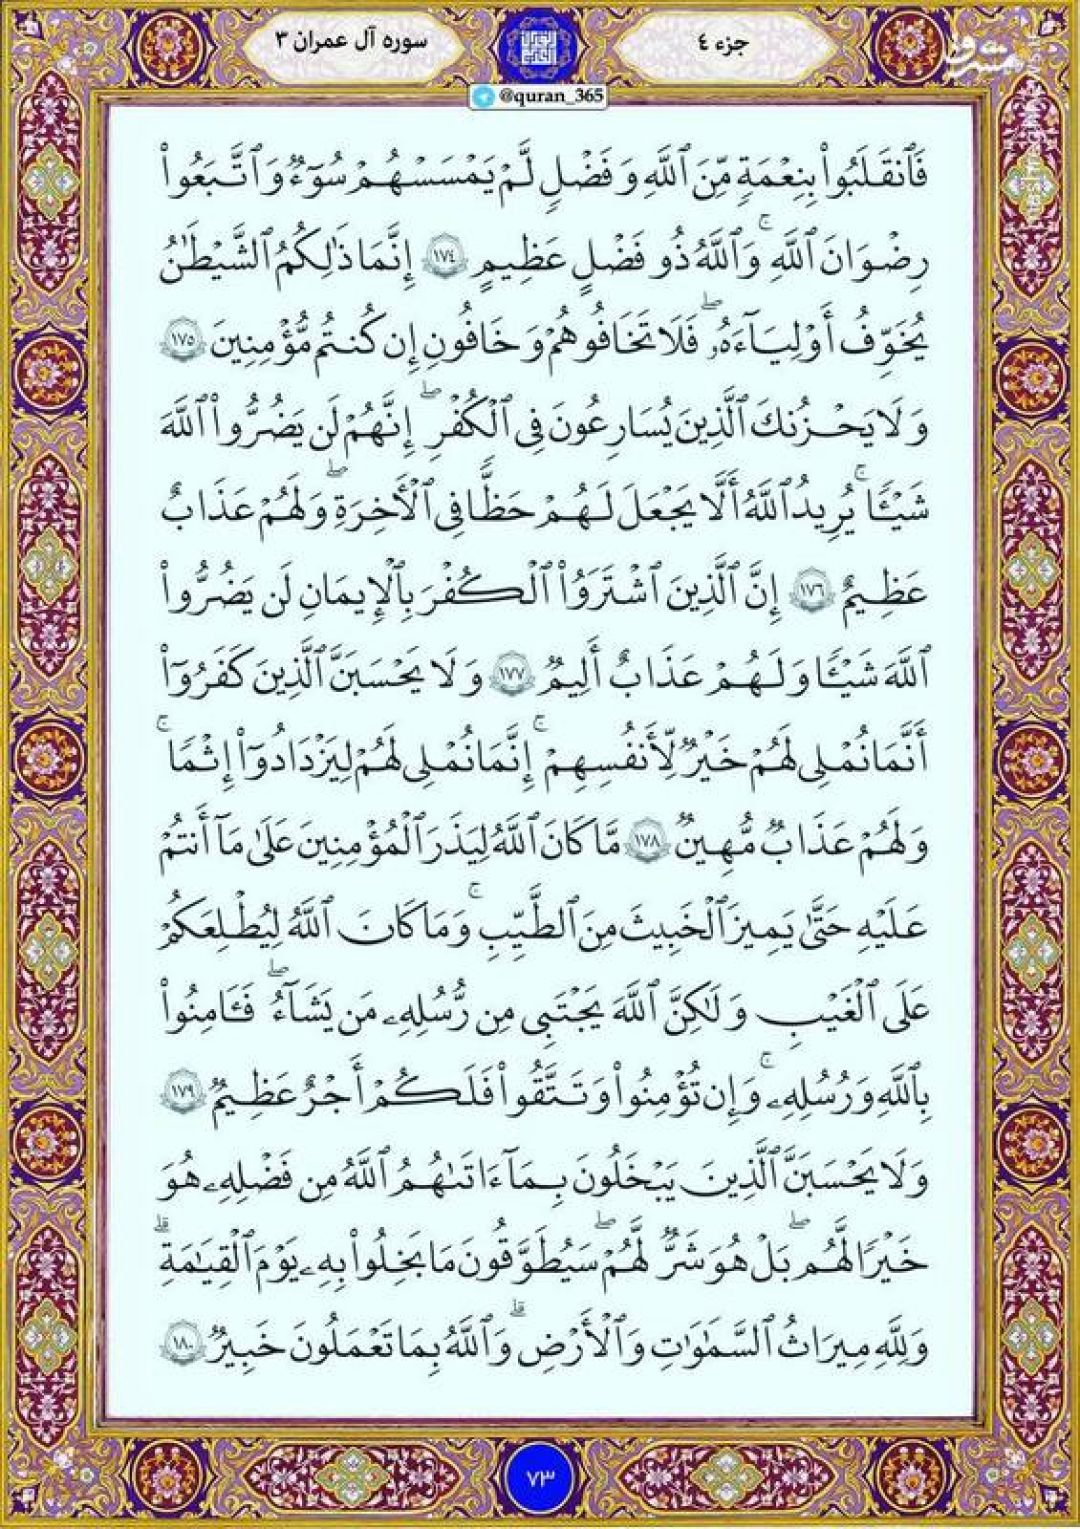 جزء ٤
سوره آل عمران ٣
@quran_365
فَٱنقَلَبُوا۟ بِنِعْمَةٍ مِّنَ ٱللَّهِ وَفَضْلٍ لَّمْ يَمْسَسْهُمْ سُوٓءٌ وَٱتَّبَعُوا۟
رِضْوَٰنَ ٱللَّهِ ۚ وَٱللَّهُ ذُو فَضْلٍ عَظِيمٍ ١٧٤ إِنَّمَا ذَٰلِكُمُ ٱلشَّيْطَٰنُ
يُخَوِّفُ أَوْلِيَآءَهُۥ ۖ فَلَا تَخَافُوهُمْ وَخَافُونِ إِن كُنتُم مُّؤْمِنِينَ ١٧٥
وَلَا يَحْزُنكَ ٱلَّذِينَ يُسَارِعُونَ فِى ٱلْكُفْرِ ۖ إِنَّهُمْ لَن يَضُرُّوا۟ ٱللَّهَ
شَيْـًٔا ۚ يُرِيدُ ٱللَّهُ أَلَّا يَجْعَلَ لَهُمْ حَظًّا فِى ٱلْأَخِرَةِ ۖ وَلَهُمْ عَذَابٌ
عَظِيمٌ ١٧٦ إِنَّ ٱلَّذِينَ ٱشْتَرَوُا۟ ٱلْكُفْرَ بِٱلْإِيمَانِ لَن يَضُرُّوا۟
ٱللَّهَ شَيْـًٔا وَلَهُمْ عَذَابٌ أَلِيمٌ ١٧٧ وَلَا يَحْسَبَنَّ ٱلَّذِينَ كَفَرُوٓا۟
أَنَّمَا نُمْلِى لَهُمْ خَيْرٌ لِّأَنفُسِهِمْ ۚ إِنَّمَا نُمْلِى لَهُمْ لِيَزْدَادُوٓا۟ إِثْمًا ۚ
وَلَهُمْ عَذَابٌ مُّهِينٌ ١٧٨ مَّا كَانَ ٱللَّهُ لِيَذَرَ ٱلْمُؤْمِنِينَ عَلَىٰ مَآ أَنتُمْ
عَلَيْهِ حَتَّىٰ يَمِيزَ ٱلْخَبِيثَ مِنَ ٱلطَّيِّبِ ۗ وَمَا كَانَ ٱللَّهُ لِيُطْلِعَكُمْ
عَلَى ٱلْغَيْبِ وَلَٰكِنَّ ٱللَّهَ يَجْتَبِى مِن رُّسُلِهِۦ مَن يَشَآءُ ۖ فَـَٔامِنُوا۟
بِٱللَّهِ وَرُسُلِهِۦ ۚ وَإِن تُؤْمِنُوا۟ وَتَتَّقُوا۟ فَلَكُمْ أَجْرٌ عَظِيمٌ ١٧٩
وَلَا يَحْسَبَنَّ ٱلَّذِينَ يَبْخَلُونَ بِمَآ ءَاتَىٰهُمُ ٱللَّهُ مِن فَضْلِهِۦ هُوَ
خَيْرًا لَّهُم ۖ بَلْ هُوَ شَرٌّ لَّهُمْ ۖ سَيُطَوَّقُونَ مَا بَخِلُوا۟ بِهِۦ يَوْمَ ٱلْقِيَٰمَةِ ۗ
وَلِلَّهِ مِيرَاثُ ٱلسَّمَٰوَٰتِ وَٱلْأَرْضِ ۗ وَٱللَّهُ بِمَا تَعْمَلُونَ خَبِيرٌ ١٨٠
٧٣